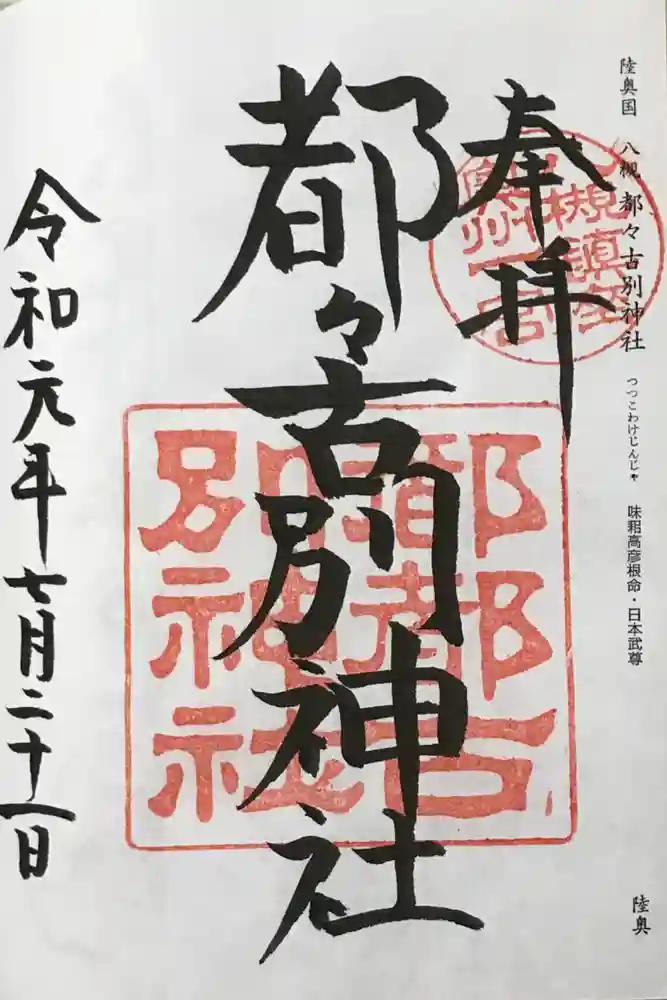 陸奥国 八槻 都々古別神社 つつこわけじんじゃ 味耜高彦根命・日本武尊
陸奥
奉拝
八槻鎮座
奥州一宮
都々古別神社
都都古別神社
令和元年七月二十一日